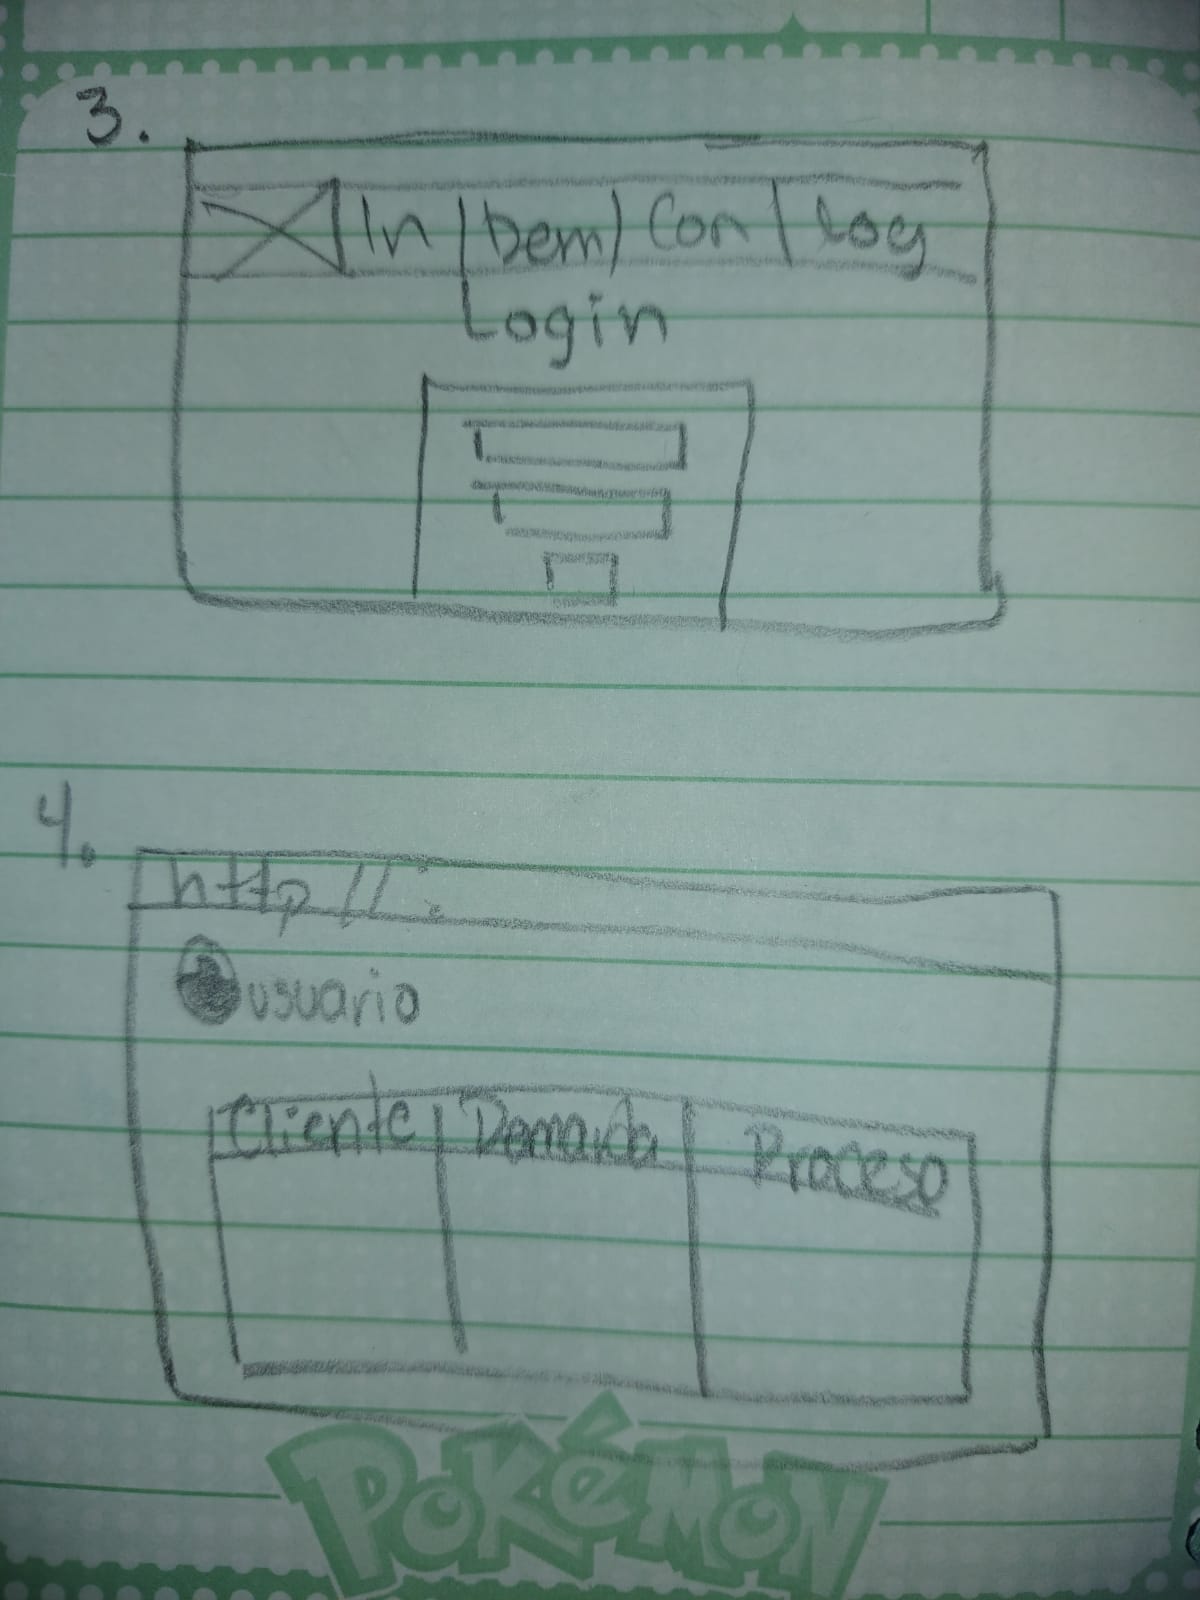 3.
In | Dem | Con | Log
Login
4.
http//:
usuario
Cliente | Demanda | Proceso
POKéMON